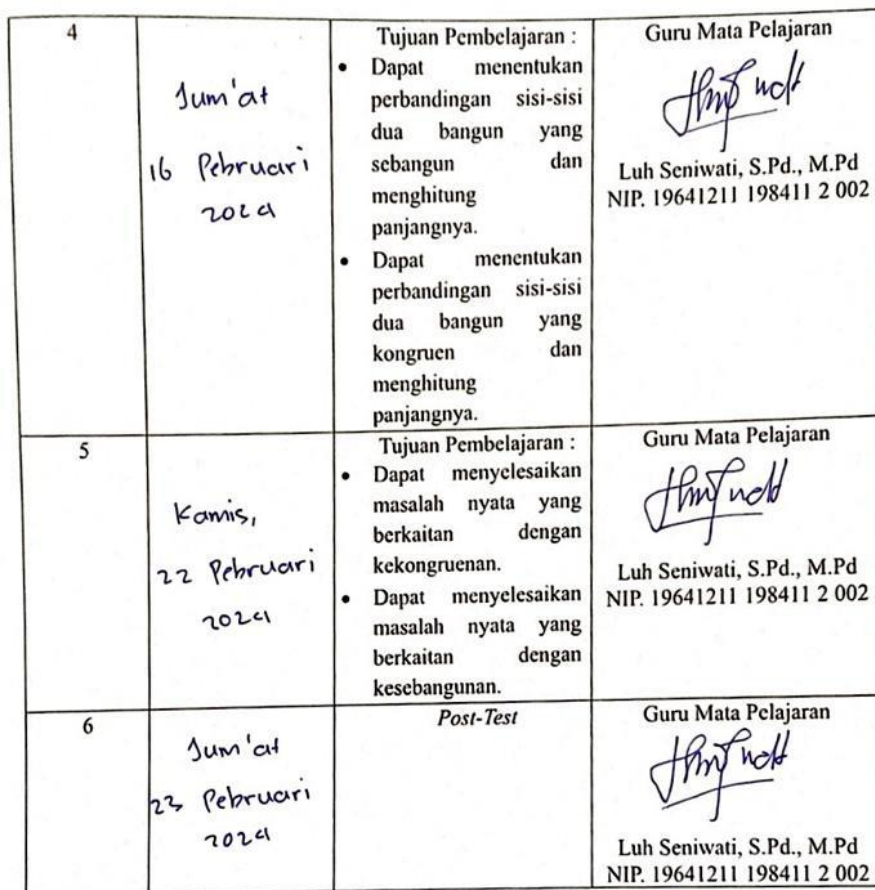 4
Jum'at
16 Pebruari
2024
Tujuan Pembelajaran :
• Dapat menentukan
perbandingan sisi-sisi
dua bangun yang
sebangun dan
menghitung
panjangnya.
• Dapat menentukan
perbandingan sisi-sisi
dua bangun yang
kongruen dan
menghitung
panjangnya.
Guru Mata Pelajaran
Luh Seniwati, S.Pd., M.Pd
NIP. 19641211 198411 2 002
5
Kamis,
22 Pebruari
2024
Tujuan Pembelajaran :
• Dapat menyelesaikan
masalah nyata yang
berkaitan dengan
kekongruenan.
• Dapat menyelesaikan
masalah nyata yang
berkaitan dengan
kesebangunan.
Guru Mata Pelajaran
Luh Seniwati, S.Pd., M.Pd
NIP. 19641211 198411 2 002
6
Jum'at
23 Pebruari
2024
Post-Test
Guru Mata Pelajaran
Luh Seniwati, S.Pd., M.Pd
NIP. 19641211 198411 2 002